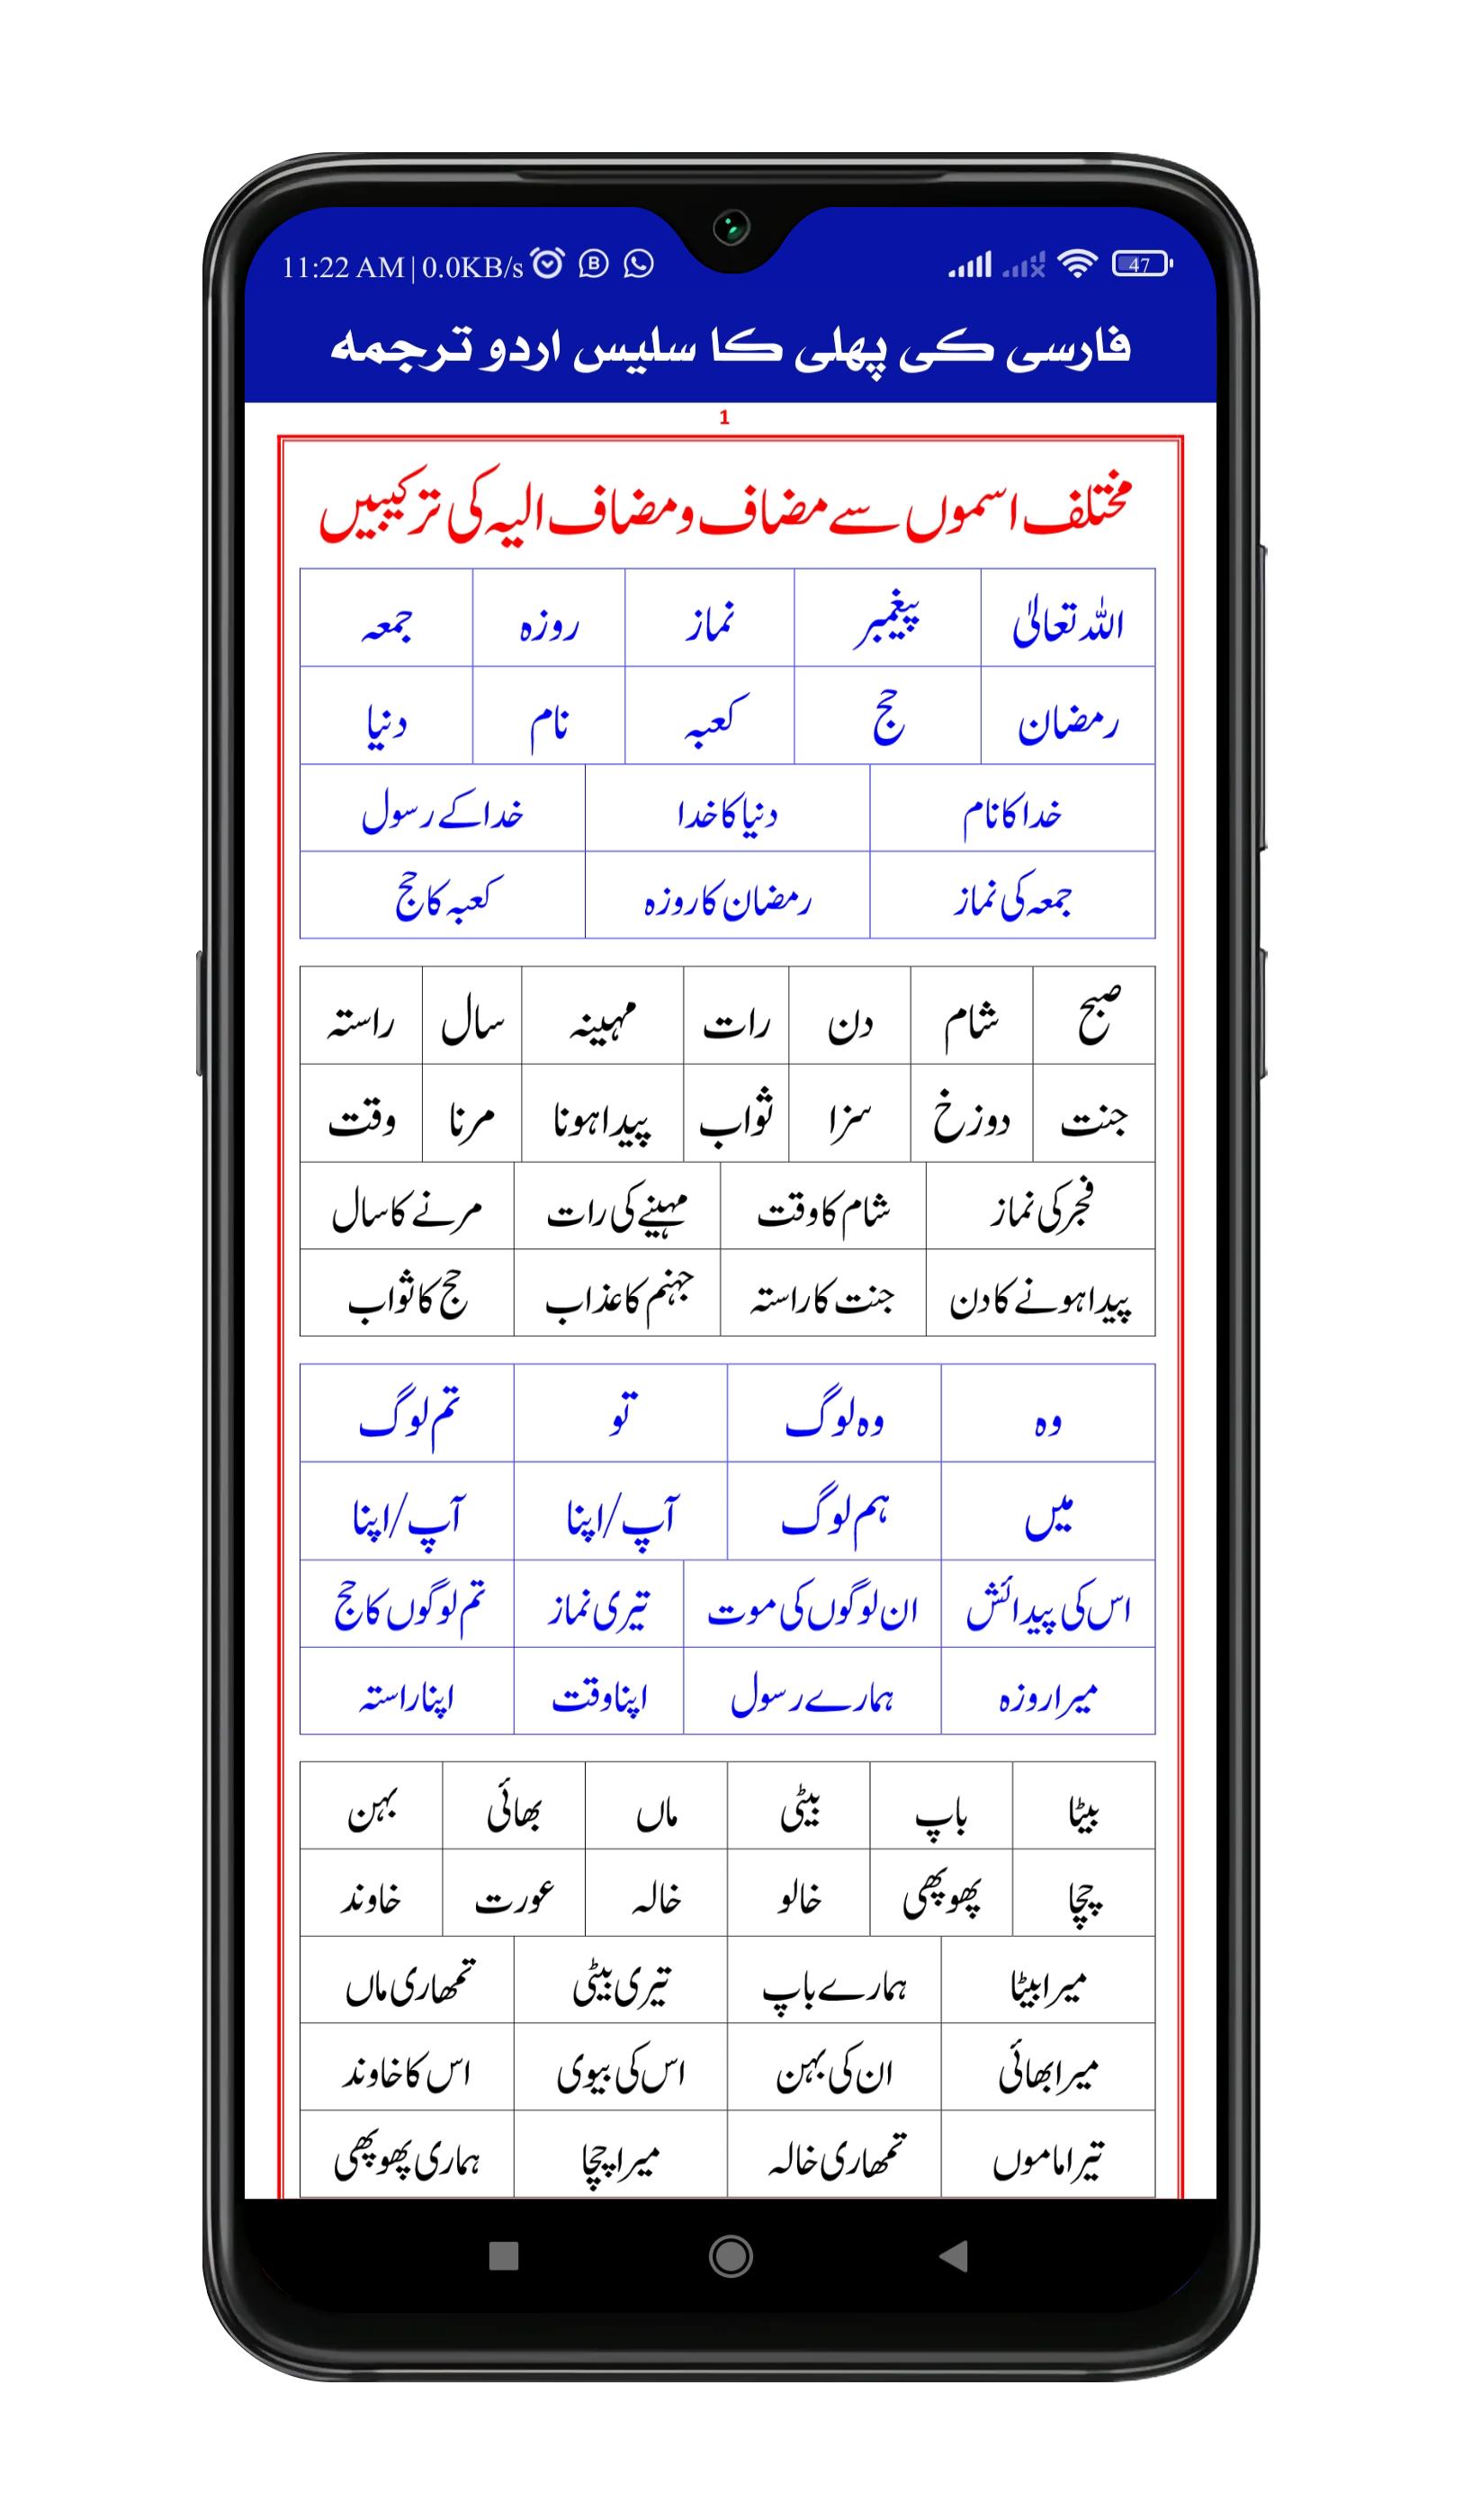 11:22 AM | 0.0KB/s 47
فارسی کی پہلی کا سلیس اردو ترجمہ
1
مختلف اسموں سے مضاف و مضاف الیہ کی ترکیبیں
اللہ تعالیٰ پیغمبر نماز روزہ جمعہ
رمضان حج کعبہ نام دنیا
خدا کا نام دنیا کا خدا خدا کے رسول
جمعہ کی نماز رمضان کا روزہ کعبہ کا حج
صبح شام دن رات مہینہ سال راستہ
جنت دوزخ سزا ثواب پیدا ہونا مرنا وقت
فجر کی نماز شام کا وقت مہینے کی رات مرنے کا سال
پیدا ہونے کا دن جنت کا راستہ جہنم کا عذاب حج کا ثواب
وہ وہ لوگ تو تم لوگ
میں ہم لوگ آپ/اپنا آپ/اپنا
اس کی پیدائش ان لوگوں کی موت تیری نماز تم لوگوں کا حج
میرا روزہ ہمارے رسول اپنا وقت اپنا راستہ
بیٹا باپ بیٹی ماں بھائی بہن
چچا پھوپھی خالو خالہ عورت خاوند
میرا بیٹا ہمارے باپ تیری بیٹی تمھاری ماں
میرا بھائی ان کی بہن اس کی بیوی اس کا خاوند
تیرا ماموں تمھاری خالہ میرا چچا ہماری پھوپھی